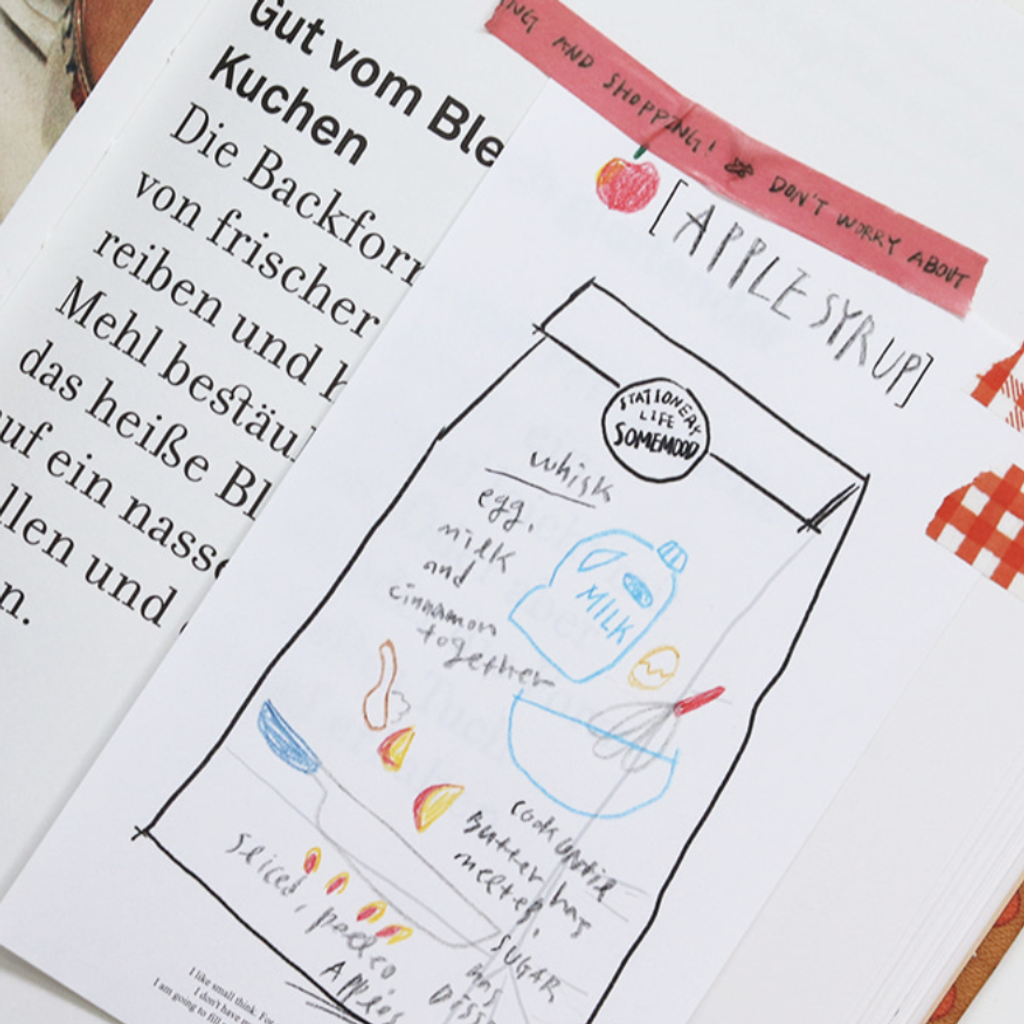 Gut vom Ble
Kuchen
Die Backforr
von frischer
reiben und h
Mehl bestäu
das heiße Bl
uf ein nasse
llen und
n.
NG AND SHOPPING! DON'T WORRY ABOUT
[APPLE SYRUP]
STATIONERY
LIFE
SOMEMOOD
whisk
egg,
milk
and
cinnamon
together
MILK
cook until
Butter has
melted.
SUGAR
has
Diss
sliced, peeled,
Apples
I like small think. For
I don't have m
I am going to fill